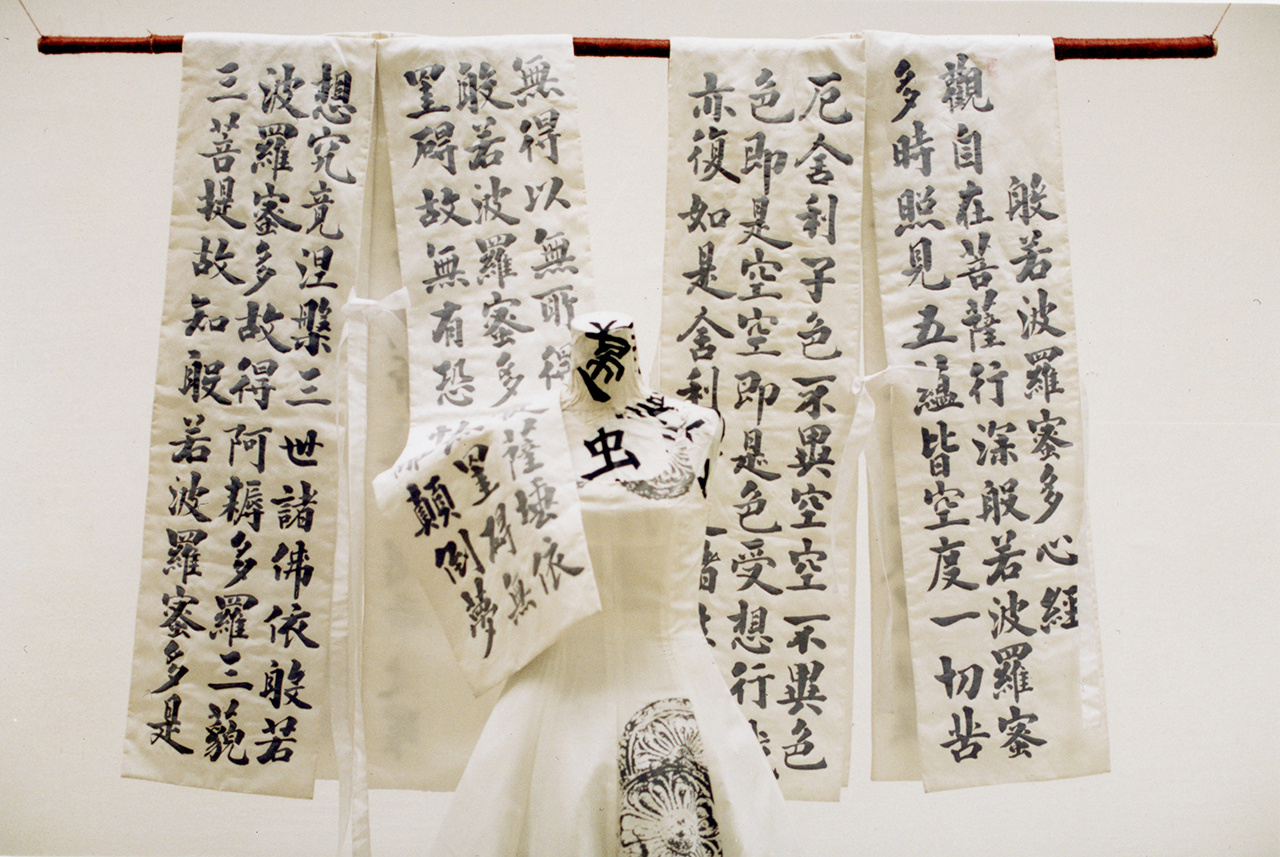 般若波羅蜜多心經
觀自在菩薩行深般若波羅蜜
多時照見五蘊皆空度一切苦
厄舍利子色不異空空不異色
色即是空空即是色受想行
亦復如是舍利
無得以無所得
般若波羅蜜多
罣礙故無有恐
想究竟涅槃三世諸佛依般若
波羅蜜多故得阿耨多羅三藐
三菩提故知般若波羅蜜多是
薩埵依
罣碍無
顛倒夢
虫